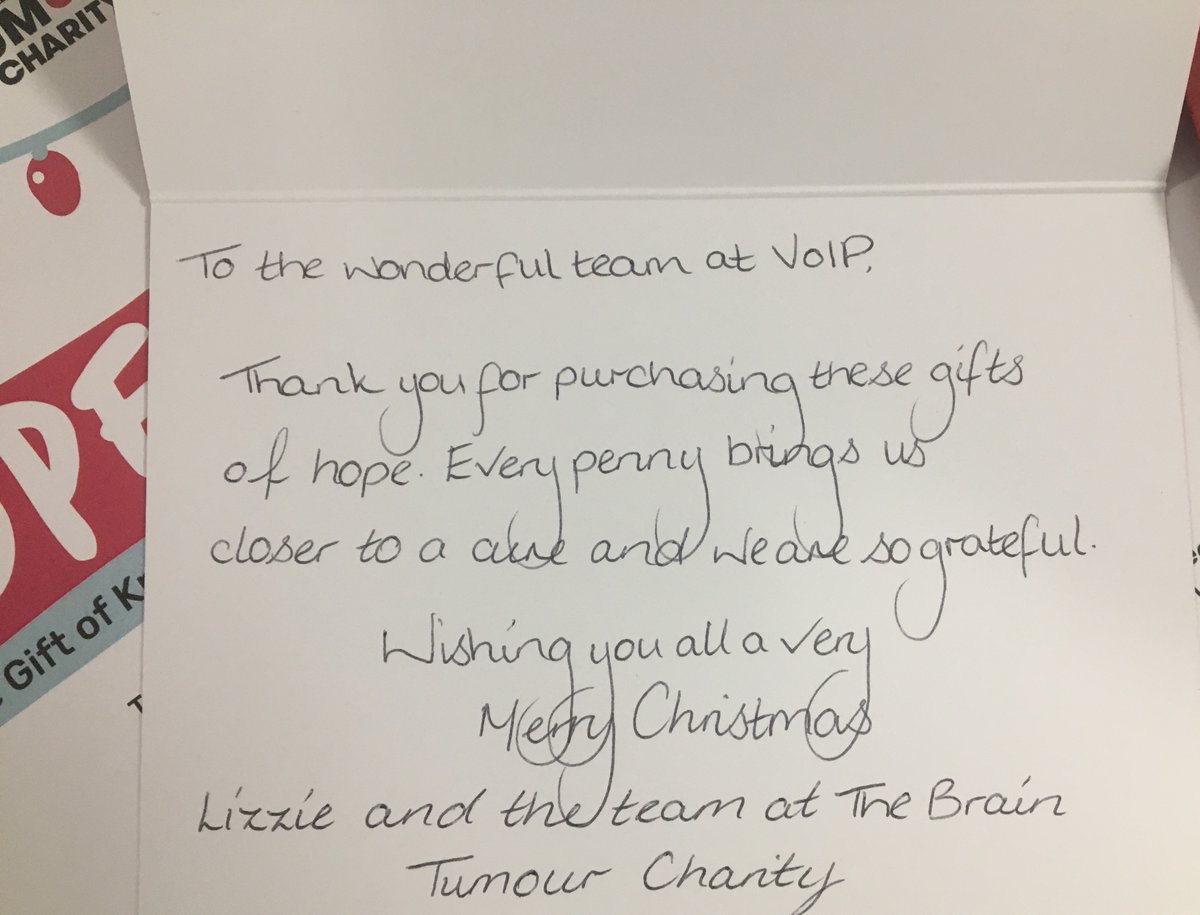 CHARITY
OPE
Gift of
To the wonderful team at VoIP,
Thank you for purchasing these gifts
of hope. Every penny brings us
closer to a cure and we are so grateful.
Wishing you all a very
Merry Christmas
Lizzie and the team at The Brain
Tumour Charity